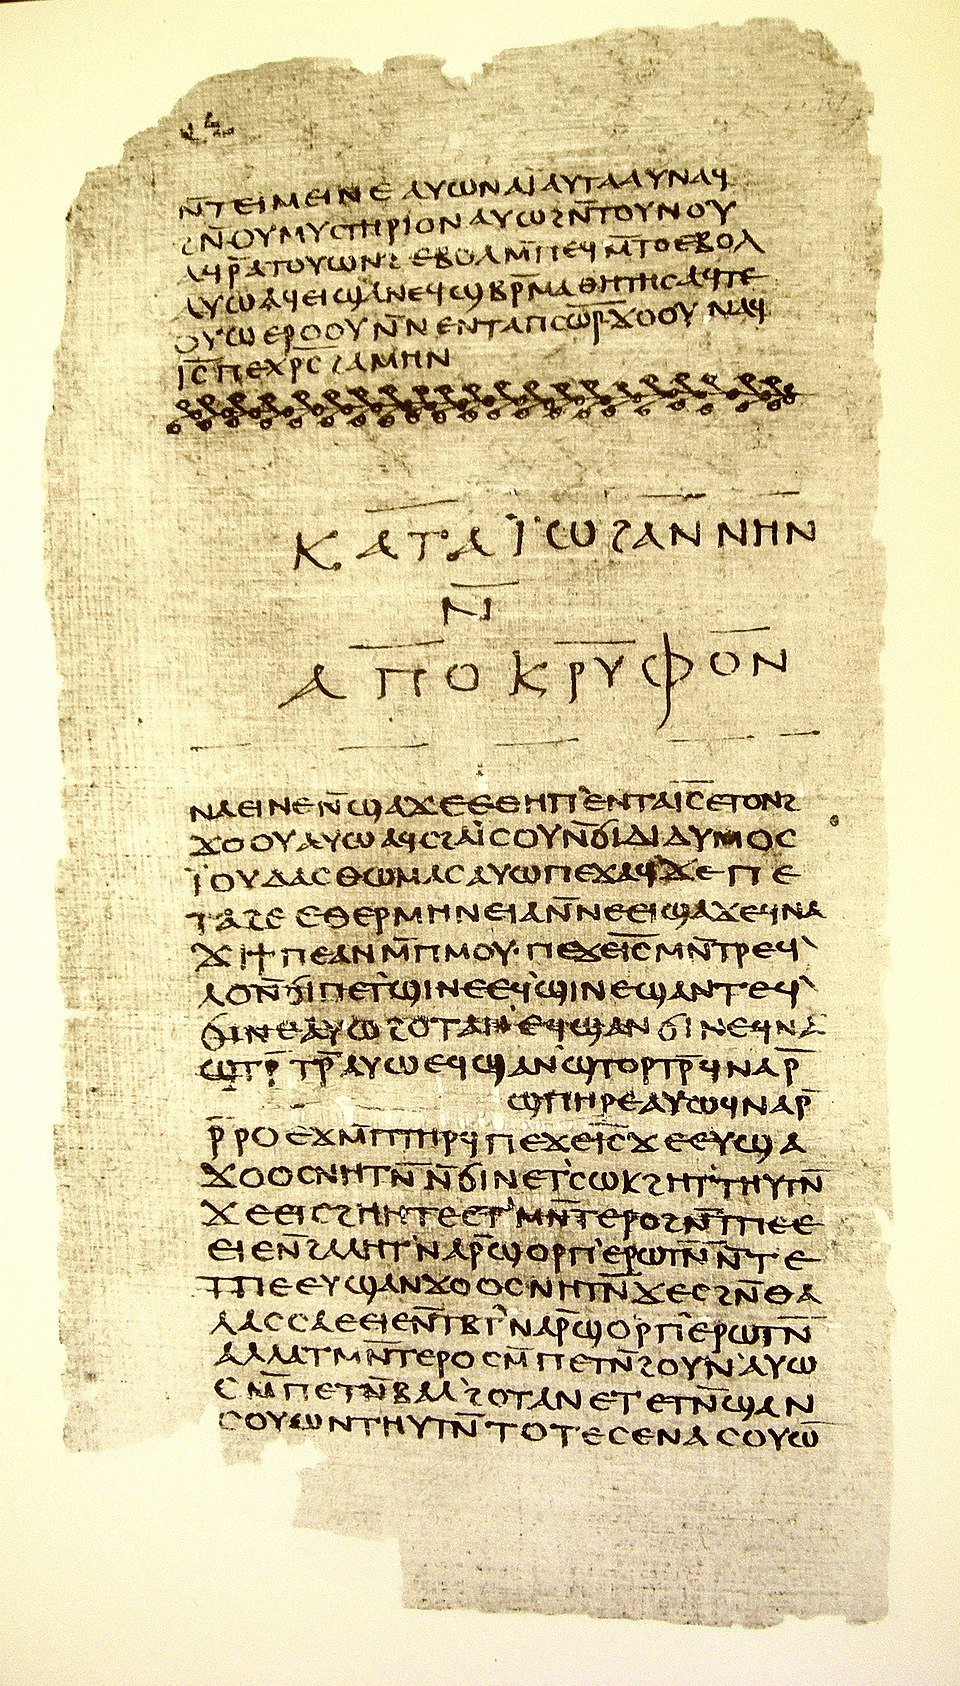 ⲛ̄ⲧⲉⲓⲙⲉⲓⲛⲉ ⲁⲩⲱ ⲛⲁⲓ ⲁⲩⲧⲁⲁⲩ ⲛⲁϥ
ϩⲛ̄ⲟⲩⲙⲩⲥⲧⲏⲣⲓⲟⲛ ⲁⲩⲱ ϩⲛ̄ⲧⲟⲩⲛⲟⲩ
ⲁϥⲣ̄ⲁⲧⲟⲩⲱⲛϩ ⲉⲃⲟⲗ ⲙ̄ⲡⲉϥⲙ̄ⲧⲟ ⲉⲃⲟⲗ
ⲁⲩⲱ ⲁϥⲉⲓ ϣⲁⲛⲉϥϣⲃⲣ̄ⲙⲁⲑⲏⲧⲏⲥ ⲁϥⲧⲉ
ⲟⲩⲱ ⲉⲣⲟⲟⲩ ⲛ̄ⲛⲉⲛⲧⲁⲡⲥⲱ̅ⲣ̅ ϫⲟⲟⲩ ⲛⲁϥ
ⲓⲥ̅ ⲡⲉⲭⲣⲥ̅ ϩⲁⲙⲏⲛ
ⲕⲁⲧⲁ ⲓ̈ⲱϩⲁⲛⲛⲏⲛ
ⲛ̄
ⲁⲡⲟⲕⲣⲩⲫⲟⲛ
ⲛⲁⲉⲓ ⲛⲉ ⲛ̄ϣⲁϫⲉ ⲉⲑⲏⲡ ⲉⲛⲧⲁⲓⲥ̅ ⲉⲧⲟⲛϩ
ϫⲟⲟⲩ ⲁⲩⲱ ⲁϥⲥϩⲁⲓ̈ⲥⲟⲩ ⲛ̄ϭⲓ ⲇⲓⲇⲩⲙⲟⲥ
ⲓ̈ⲟⲩⲇⲁⲥ ⲑⲱⲙⲁⲥ ⲁⲩⲱ ⲡⲉϫⲁϥ ϫⲉ ⲡⲉ
ⲧⲁϩⲉ ⲉⲑⲉⲣⲙⲏⲛⲉⲓⲁ ⲛ̄ⲛⲉⲉⲓϣⲁϫⲉ ϥⲛⲁ
ϫⲓϯⲡⲉ ⲁⲛ ⲙ̄ⲡⲙⲟⲩ· ⲡⲉϫⲉⲓⲥ̅ ⲙⲛ̄ⲧⲣⲉϥ
ⲗⲟ ⲛ̄ϭⲓ ⲡⲉⲧϣⲓⲛⲉ ⲉϥϣⲓⲛⲉ ϣⲁⲛⲧⲉϥ
ϭⲓⲛⲉ ⲁⲩⲱ ϩⲟⲧⲁⲛ ⲉϥϣⲁⲛϭⲓⲛⲉ ϥⲛⲁ
ϣⲧⲣ̄ⲧⲣ̄ ⲁⲩⲱ ⲉϥϣⲁⲛϣⲧⲟⲣⲧⲣ̄ ϥⲛⲁⲣ̄
ϣⲡⲏⲣⲉ ⲁⲩⲱ ϥⲛⲁⲣ̄
ⲣ̄ⲣⲟ ⲉϫⲙ̄ⲡⲧⲏⲣϥ ⲡⲉϫⲉⲓⲥ̅ ϫⲉ ⲉⲩϣⲁ
ϫⲟⲟⲥ ⲛⲏⲧⲛ̄ ⲛ̄ϭⲓ ⲛⲉⲧⲥⲱⲕ ϩⲏⲧⲧⲏⲩⲧⲛ̄
ϫⲉ ⲉⲓⲥϩⲏⲏⲧⲉ ⲉⲧⲙⲛ̄ⲧⲉⲣⲟ ϩⲛ̄ⲧⲡⲉ ⲉ
ⲉⲓⲉ ⲛ̄ϩⲁⲗⲏⲧ ⲛⲁⲣ̄ϣⲟⲣⲡ ⲉⲣⲱⲧⲛ̄ ⲛ̄ⲧⲉ
ⲧⲡⲉ ⲉⲩϣⲁⲛϫⲟⲟⲥ ⲛⲏⲧⲛ̄ ϫⲉ ⲥϩⲛ̄ⲑⲁ
ⲗⲁⲥⲥⲁ ⲉⲉⲓⲉ ⲛ̄ⲧⲃⲧ ⲛⲁⲣ̄ϣⲟⲣⲡ ⲉⲣⲱⲧⲛ̄
ⲁⲗⲗⲁ ⲧⲙⲛ̄ⲧⲉⲣⲟ ⲥⲙ̄ⲡⲉⲧⲛ̄ϩⲟⲩⲛ ⲁⲩⲱ
ⲥⲙ̄ⲡⲉⲧⲛ̄ⲃⲁⲗ ϩⲟⲧⲁⲛ ⲉⲧⲉⲧⲛ̄ϣⲁⲛ
ⲥⲟⲩⲱⲛ ⲧⲏⲩⲧⲛ̄ ⲧⲟⲧⲉ ⲥⲉⲛⲁⲥⲟⲩⲱ̅